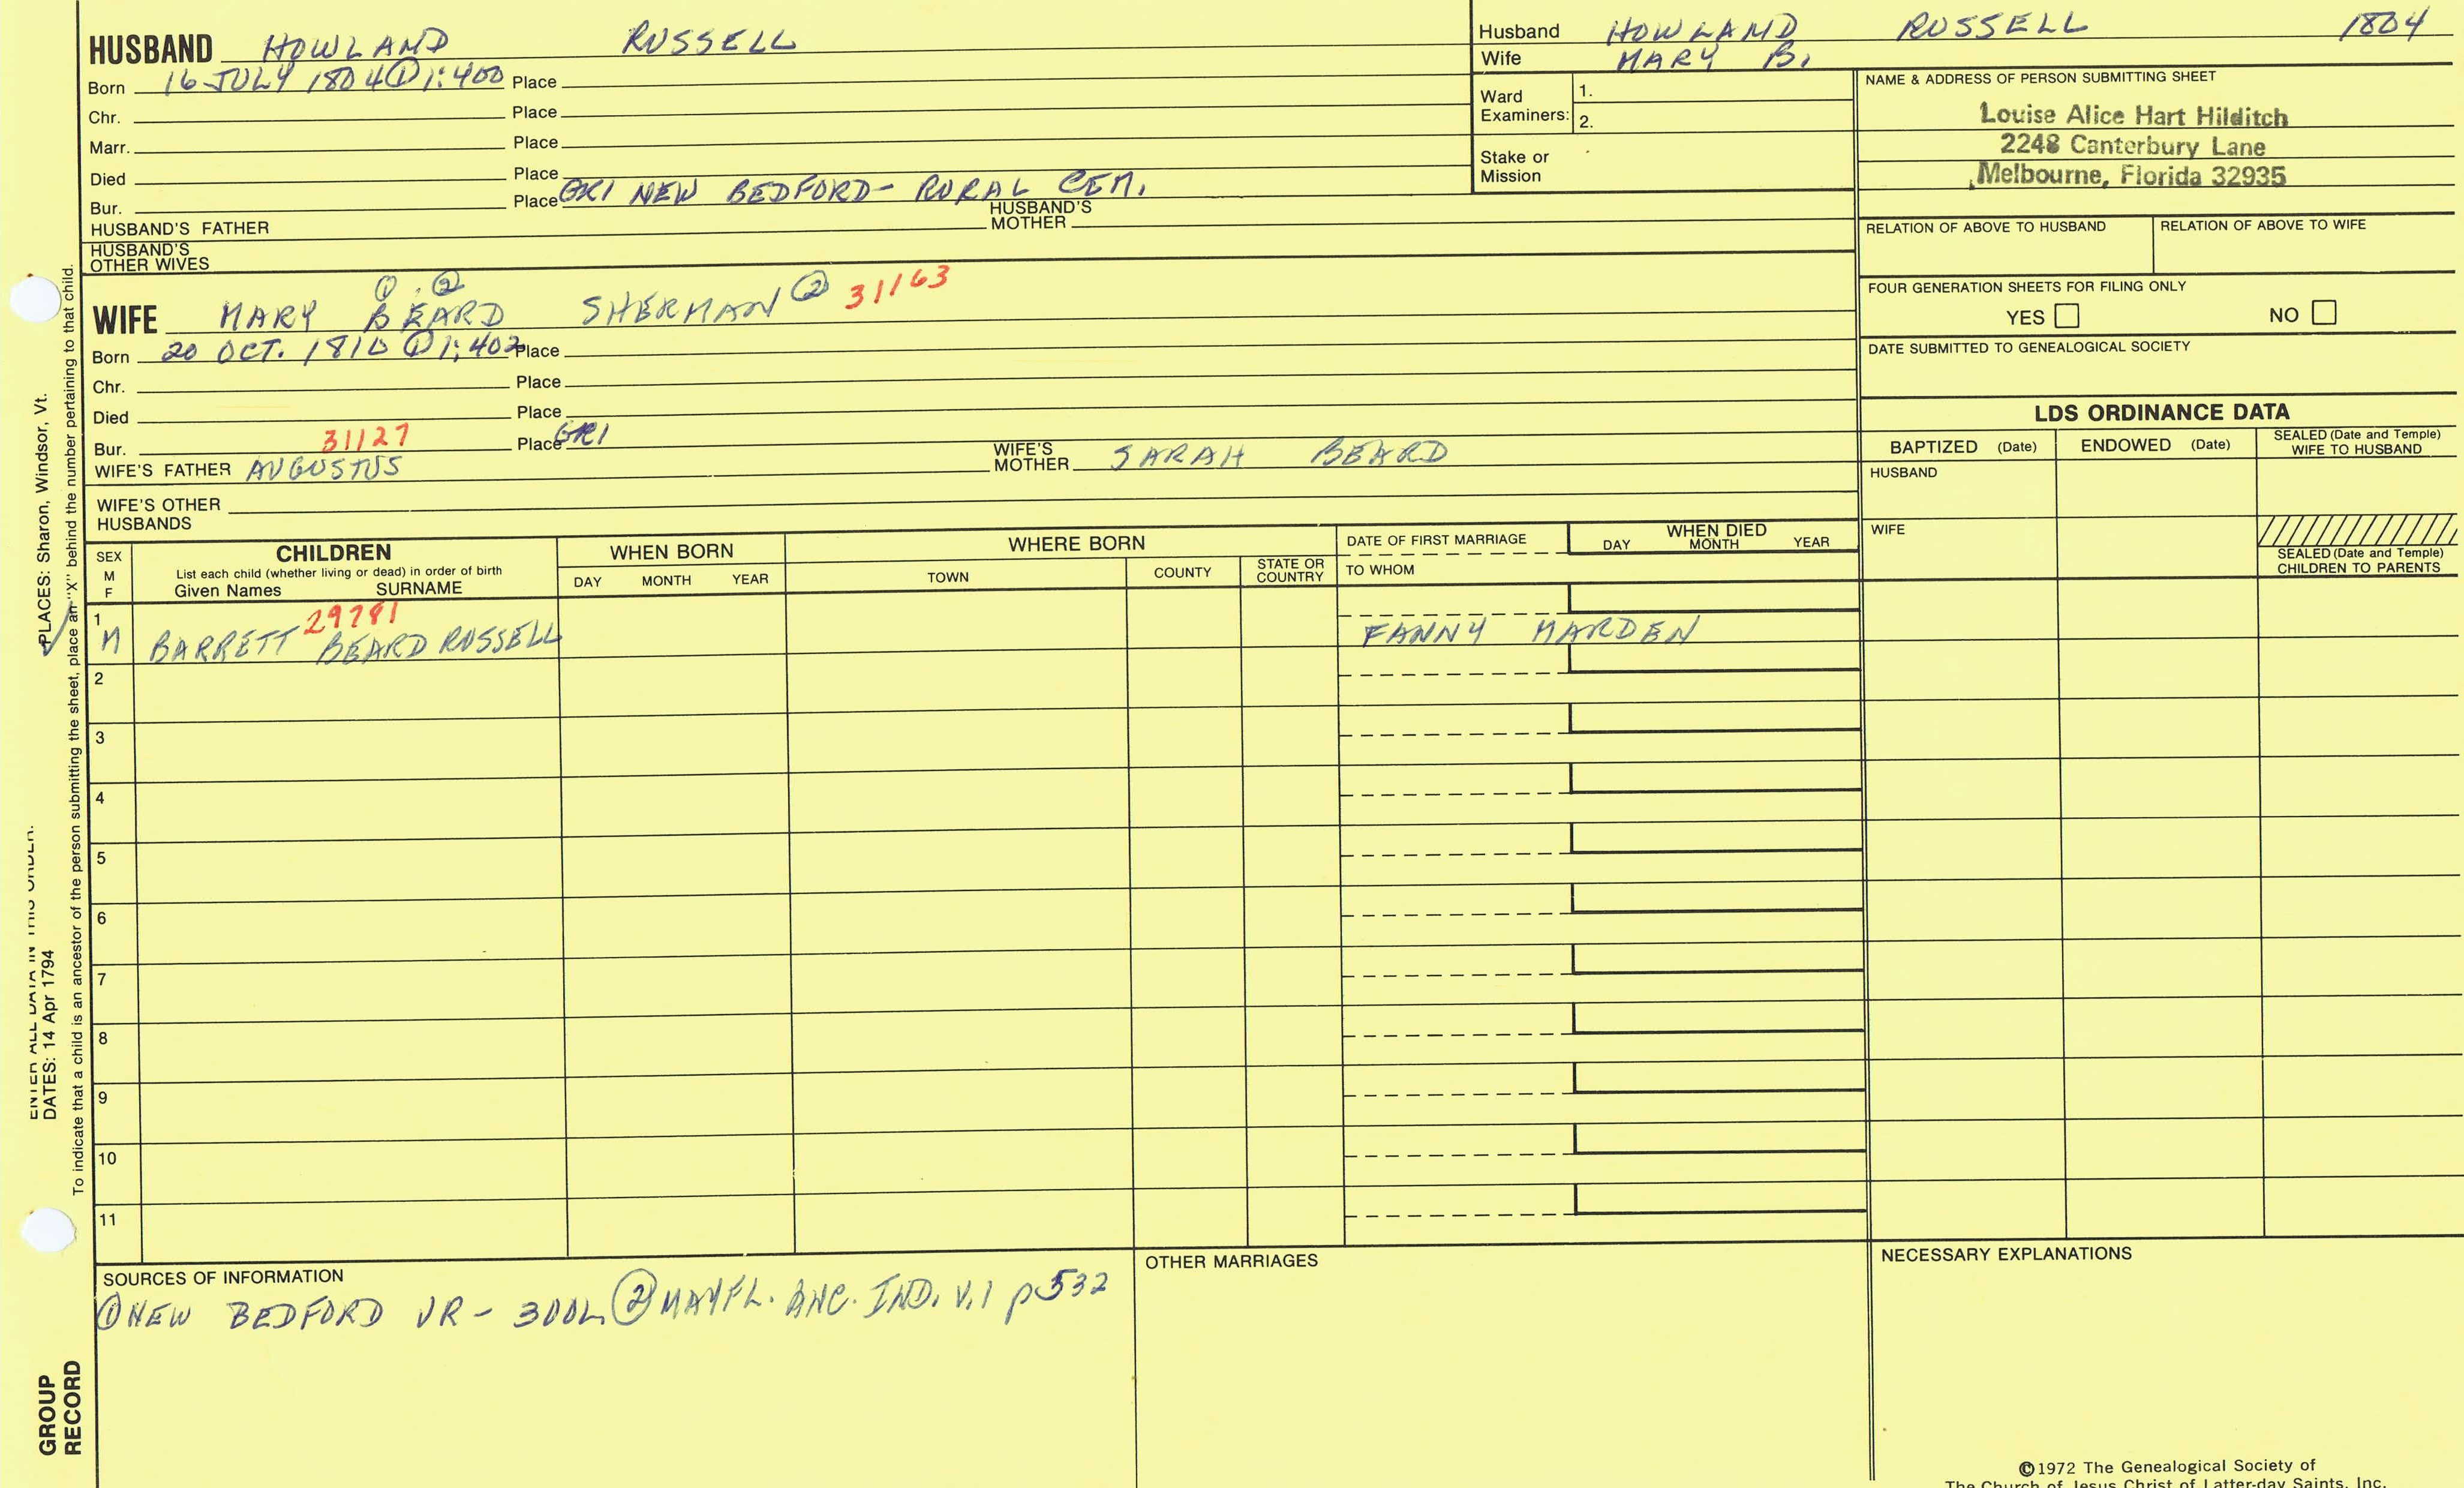 HUSBAND HOWLAND RUSSELL
Born 16 JULY 1804 ① 1:400 Place
Chr. Place
Marr. Place
Died Place
Bur. Place GR1 NEW BEDFORD - RURAL CEM.
HUSBAND'S FATHER HUSBAND'S MOTHER
HUSBAND'S OTHER WIVES
① . ②
WIFE MARY BEARD SHERMAN ② 31163
Born 20 OCT. 1810 ① 1:402 Place
Chr. Place
Died Place
Bur. 31127 Place GR1
WIFE'S FATHER AUGUSTUS WIFE'S MOTHER SARAH BEARD
WIFE'S OTHER HUSBANDS
Husband HOWLAND RUSSELL 1804
Wife MARY B.
Ward Examiners: 1.
2.
Stake or Mission
NAME & ADDRESS OF PERSON SUBMITTING SHEET
Louise Alice Hart Hilditch
2248 Canterbury Lane
Melbourne, Florida 32935
RELATION OF ABOVE TO HUSBAND RELATION OF ABOVE TO WIFE
FOUR GENERATION SHEETS FOR FILING ONLY
YES NO
DATE SUBMITTED TO GENEALOGICAL SOCIETY
LDS ORDINANCE DATA
BAPTIZED (Date) ENDOWED (Date) SEALED (Date and Temple) WIFE TO HUSBAND
HUSBAND
WIFE
SEALED (Date and Temple) CHILDREN TO PARENTS
SEX M F
CHILDREN
List each child (whether living or dead) in order of birth
Given Names SURNAME
WHEN BORN
DAY MONTH YEAR
WHERE BORN
TOWN COUNTY STATE OR COUNTRY
DATE OF FIRST MARRIAGE
TO WHOM
WHEN DIED
DAY MONTH YEAR
29781
1 M BARRETT BEARD RUSSELL FANNY MARDEN
2
3
4
5
6
7
8
9
10
11
SOURCES OF INFORMATION
① NEW BEDFORD VR - 300L ② MAYFL. ANC. IND. V.1 p532
OTHER MARRIAGES
NECESSARY EXPLANATIONS
©1972 The Genealogical Society of
The Church of Jesus Christ of Latter-day Saints, Inc.
ENTER ALL DATA IN THIS ORDER.
PLACES: Sharon, Windsor, Vt.
DATES: 14 Apr 1794
To indicate that a child is an ancestor of the person submitting the sheet, place an "X" behind the number pertaining to that child.
GROUP
RECORD